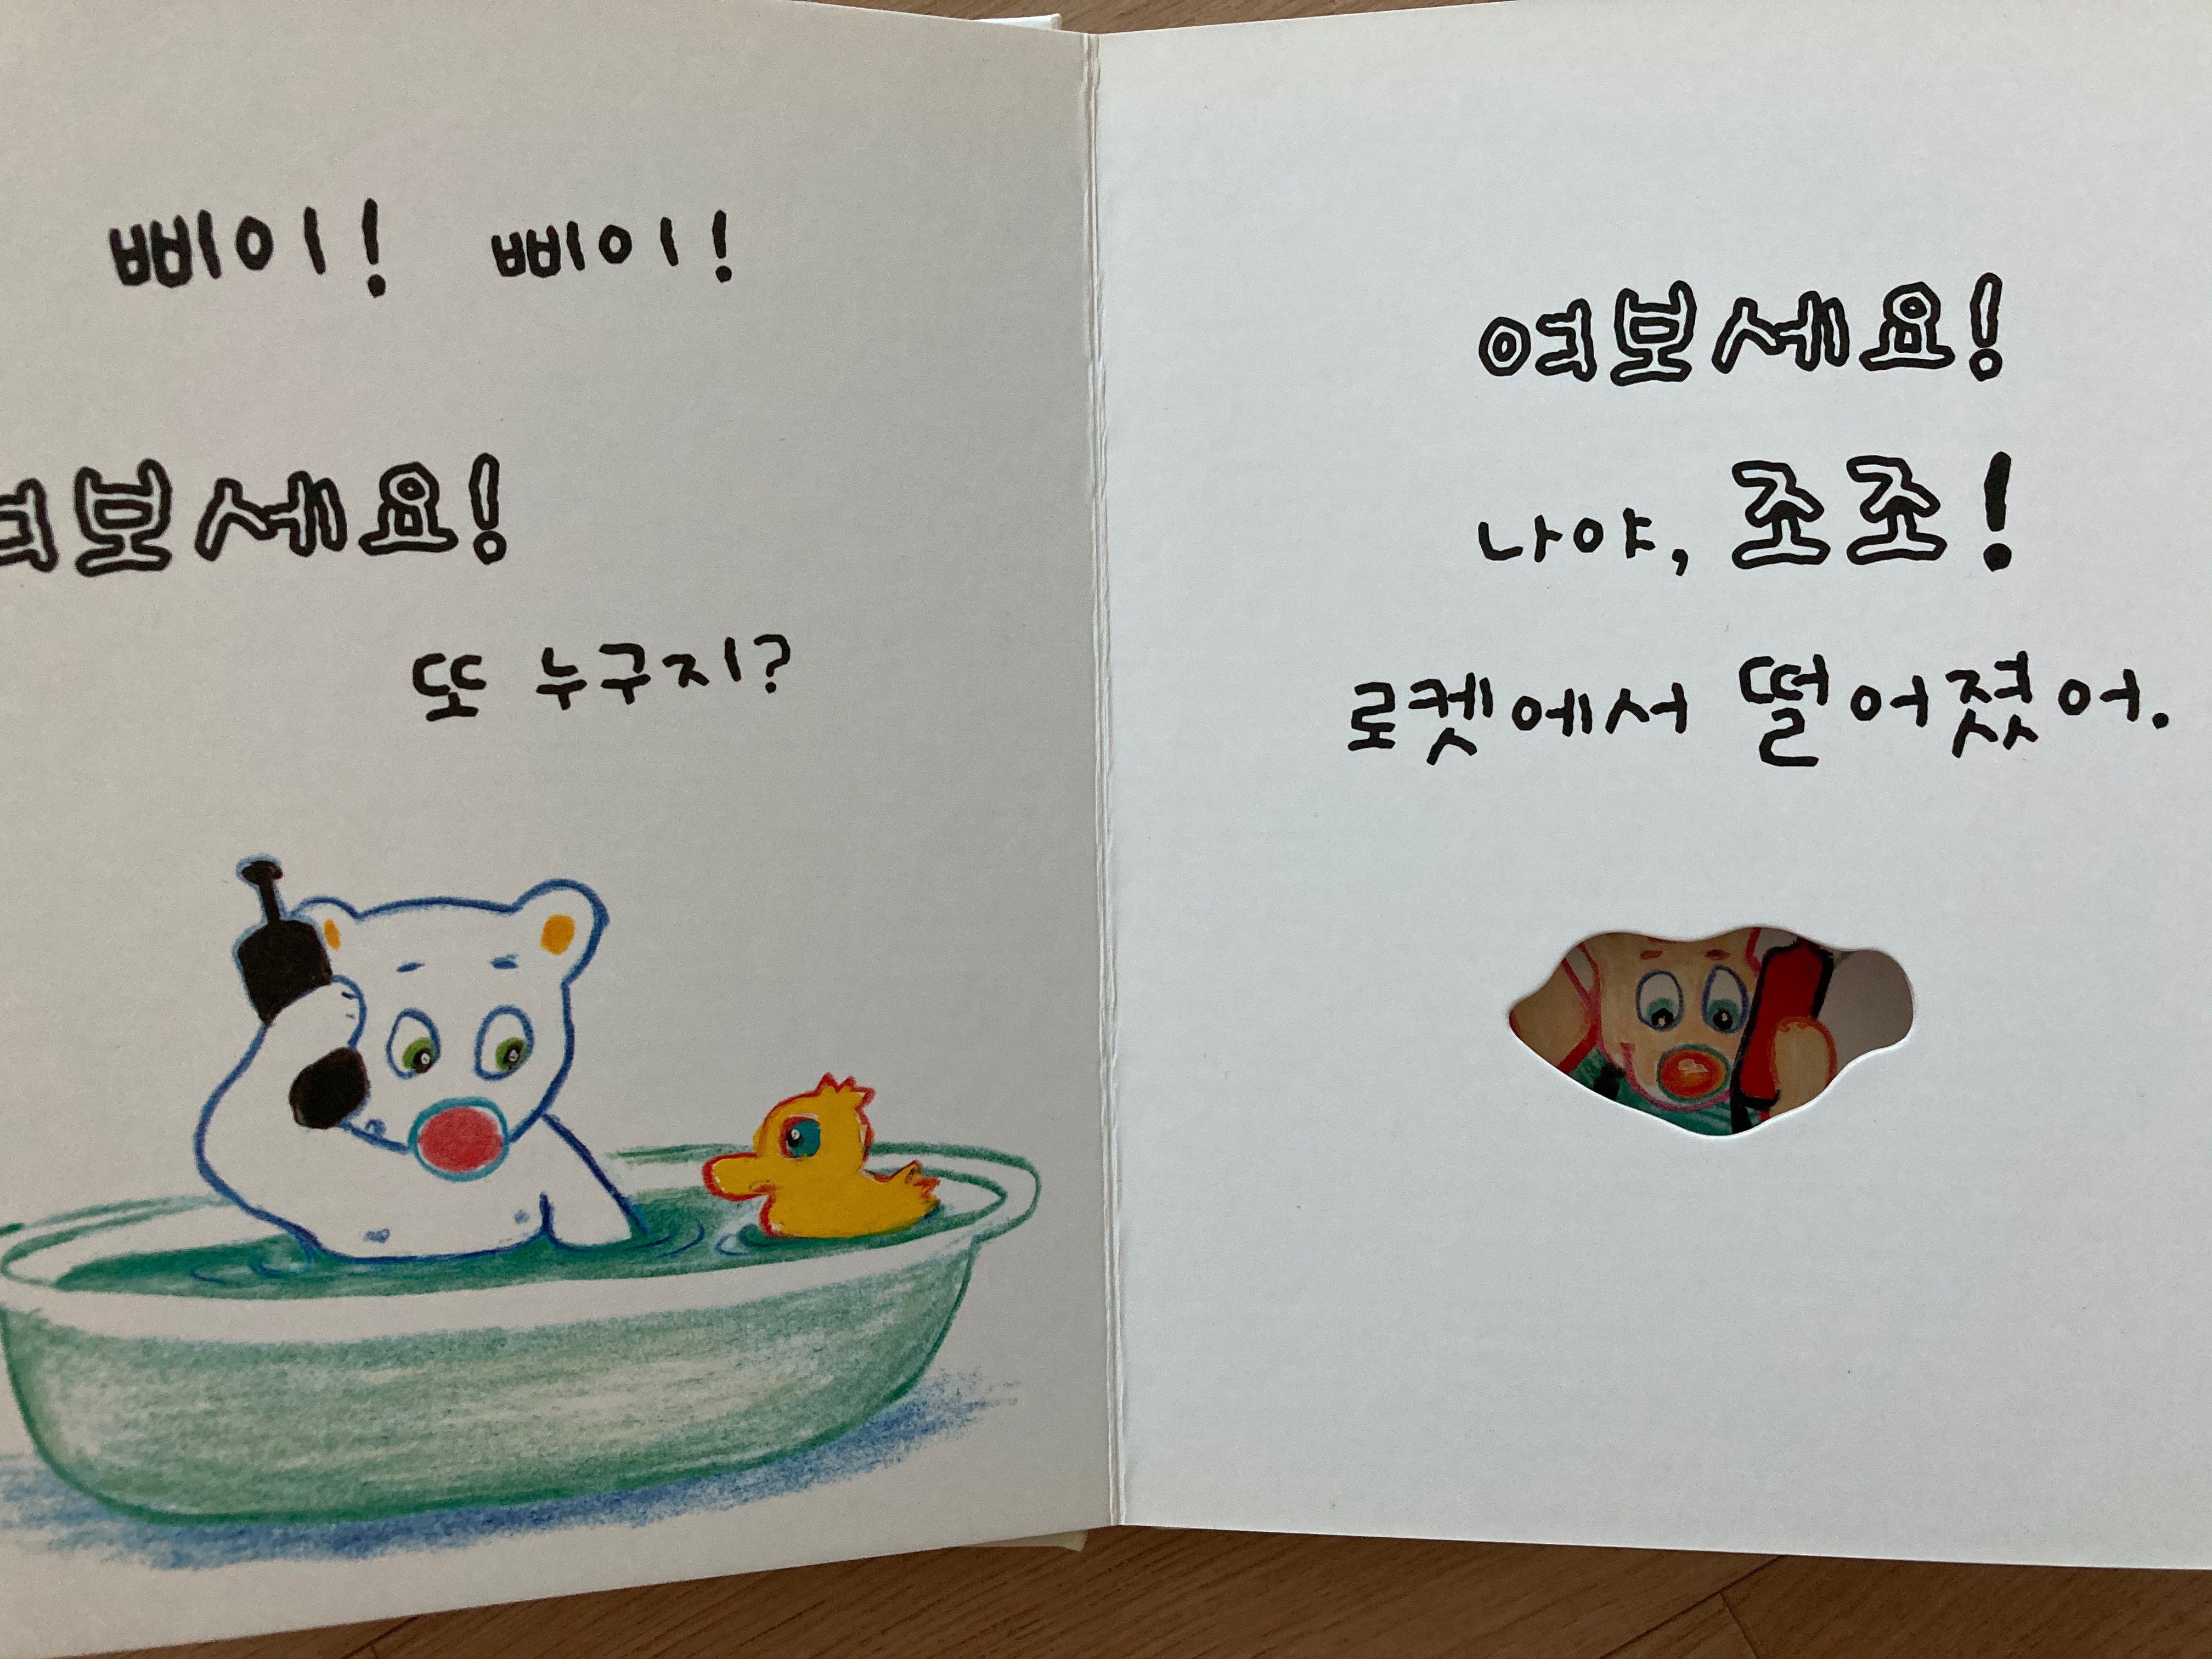 삐이! 삐이!
여보세요!
또 누구지?
여보세요!
나야, 조조!
로켓에서 떨어졌어.